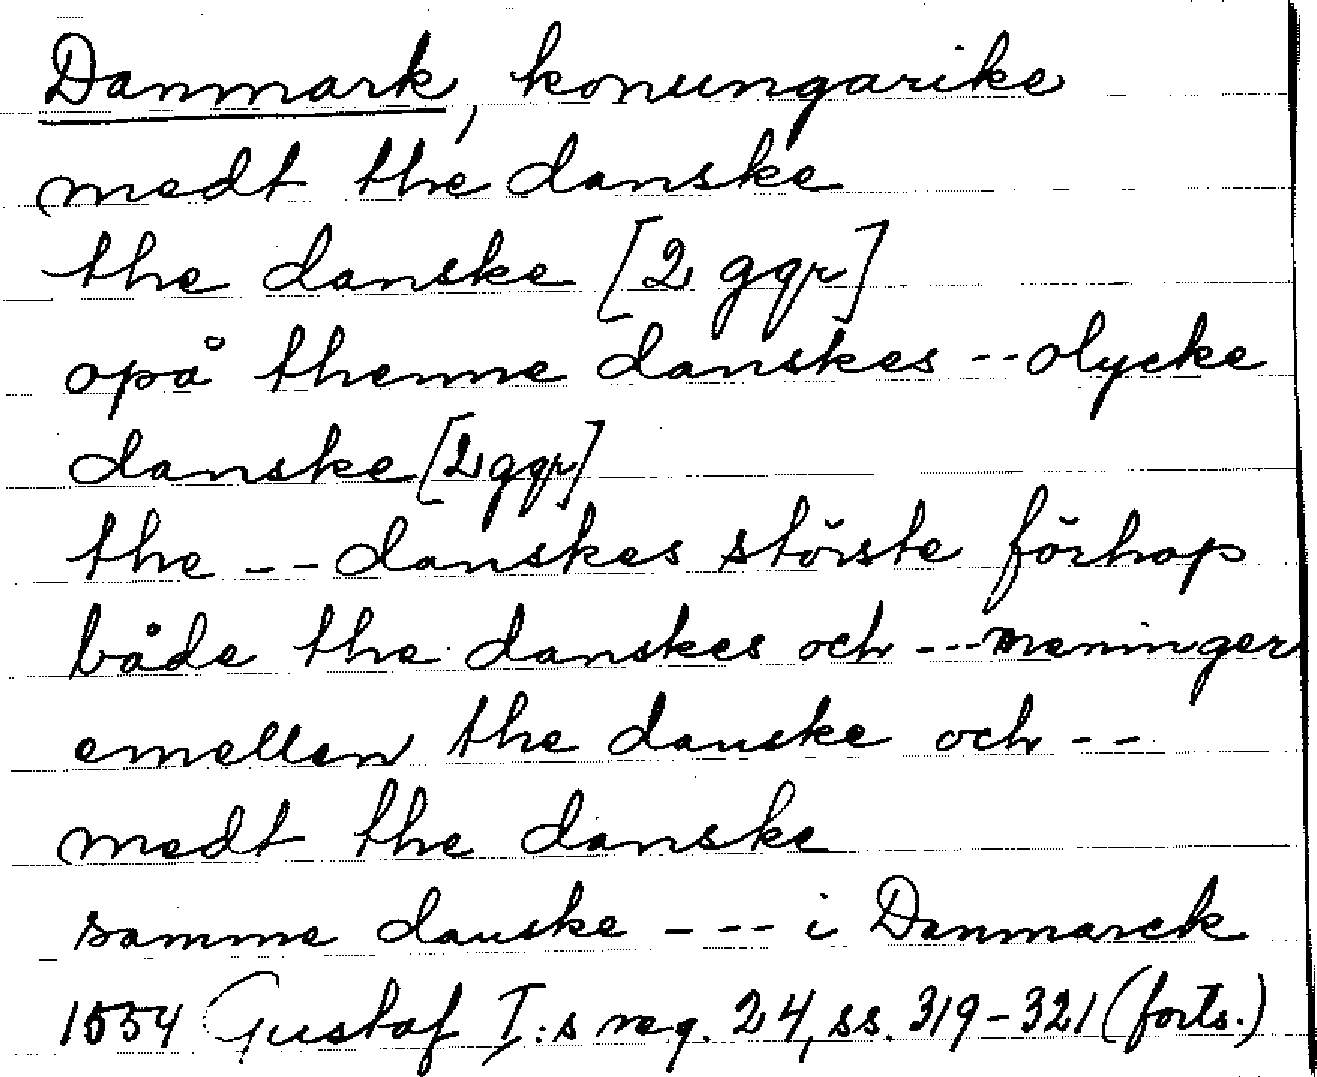 Danmark, konungarike
medt the danske
the danske [2 ggr]
opå thenne danskes -- olycke
danske [2 ggr]
the -- danskes störste förhop
både the danskes och --- meninger
emellen the danske och --
medt the danske
samme danske --- i Danmarck
1554 Gustaf I:s reg. 24, ss. 319-321 (forts.)